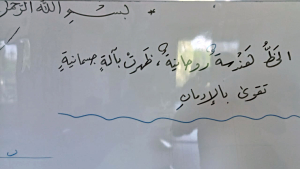 بسم الله الرحمن
الخطُّ هَنْدسةٌ روحانيةٌ، ظَهرتْ بآلةٍ جسمانيةٍ
تقوى بالإدمانِ